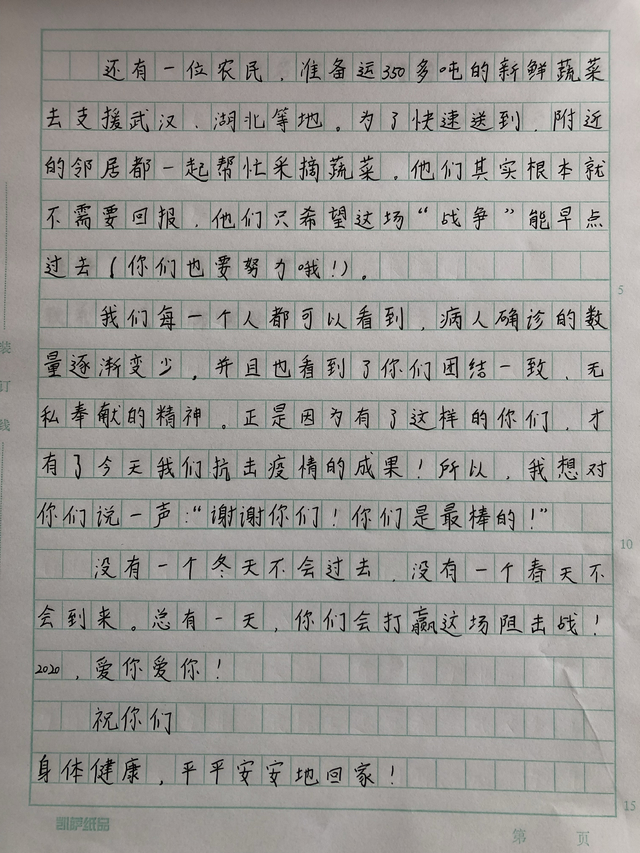 还有一位农民，准备运350多吨的新鲜蔬菜
去支援武汉、湖北等地。为了快速送到，附近
的邻居都一起帮忙采摘蔬菜。他们其实根本就
不需要回报，他们只希望这场“战争”能早点
过去（你们也要努力哦！）。
我们每一个人都可以看到，病人确诊的数
量逐渐变少，并且也看到了你们团结一致、无
私奉献的精神。正是因为有了这样的你们，才
有了今天我们抗击疫情的成果！所以，我想对
你们说一声：“谢谢你们！你们是最棒的！”
没有一个冬天不会过去，没有一个春天不
会到来。总有一天，你们会打赢这场阻击战！
2020，爱你爱你！
祝你们
身体健康，平平安安地回家！
装
订
线
5
10
15
第 页